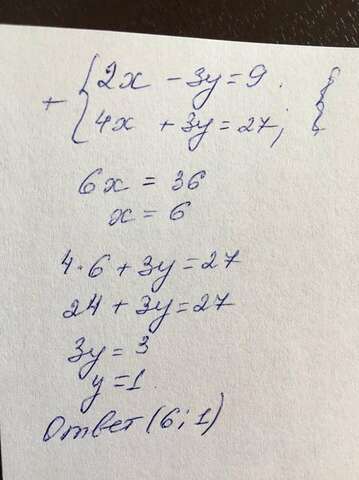 + { 2x - 3y = 9
4x + 3y = 27; {
6x = 36
x = 6
4·6 + 3y = 27
24 + 3y = 27
3y = 3
y = 1
Ответ (6; 1)